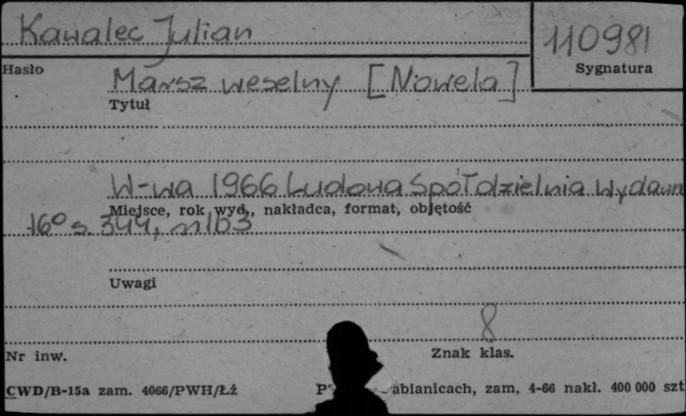 Kawalec Julian
110981
Hasło
Sygnatura
Marsz weselny [Nowela]
Tytuł
W-wa 1966 Ludowa Spółdzielnia Wydawn
Miejsce, rok wyd., nakładca, format, objętość
16° s. 344, nlb 3
Uwagi
8
Nr inw.
Znak klas.
CWD/B-15a zam. 4066/PWH/Łż
abianicach, zam, 4-66 nakł. 400 000 szt